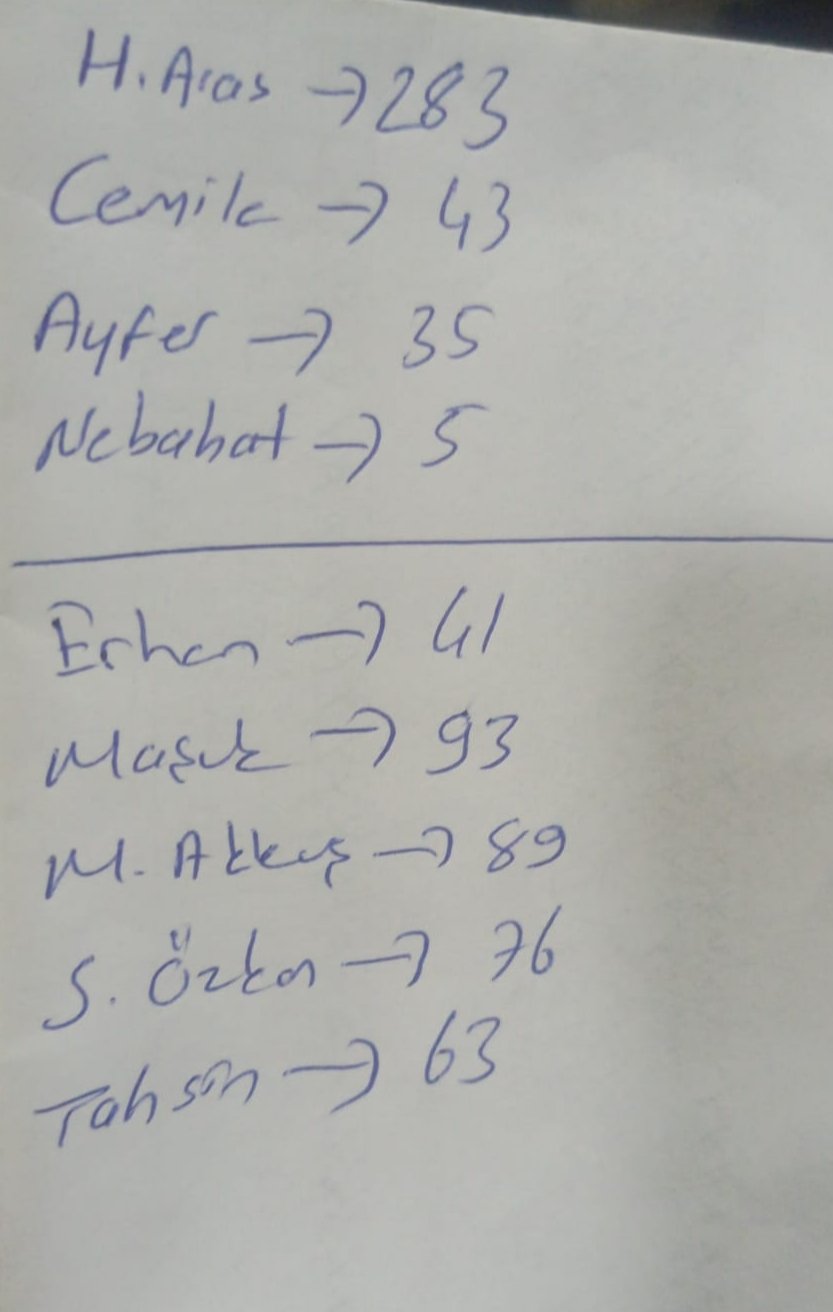 H. Aras → 283
Cemile → 43
Ayfer → 35
Nebahat → 5
Erhan → 41
Maşuk → 93
M. Akkuş → 89
S. Özkan → 76
Tahsin → 63